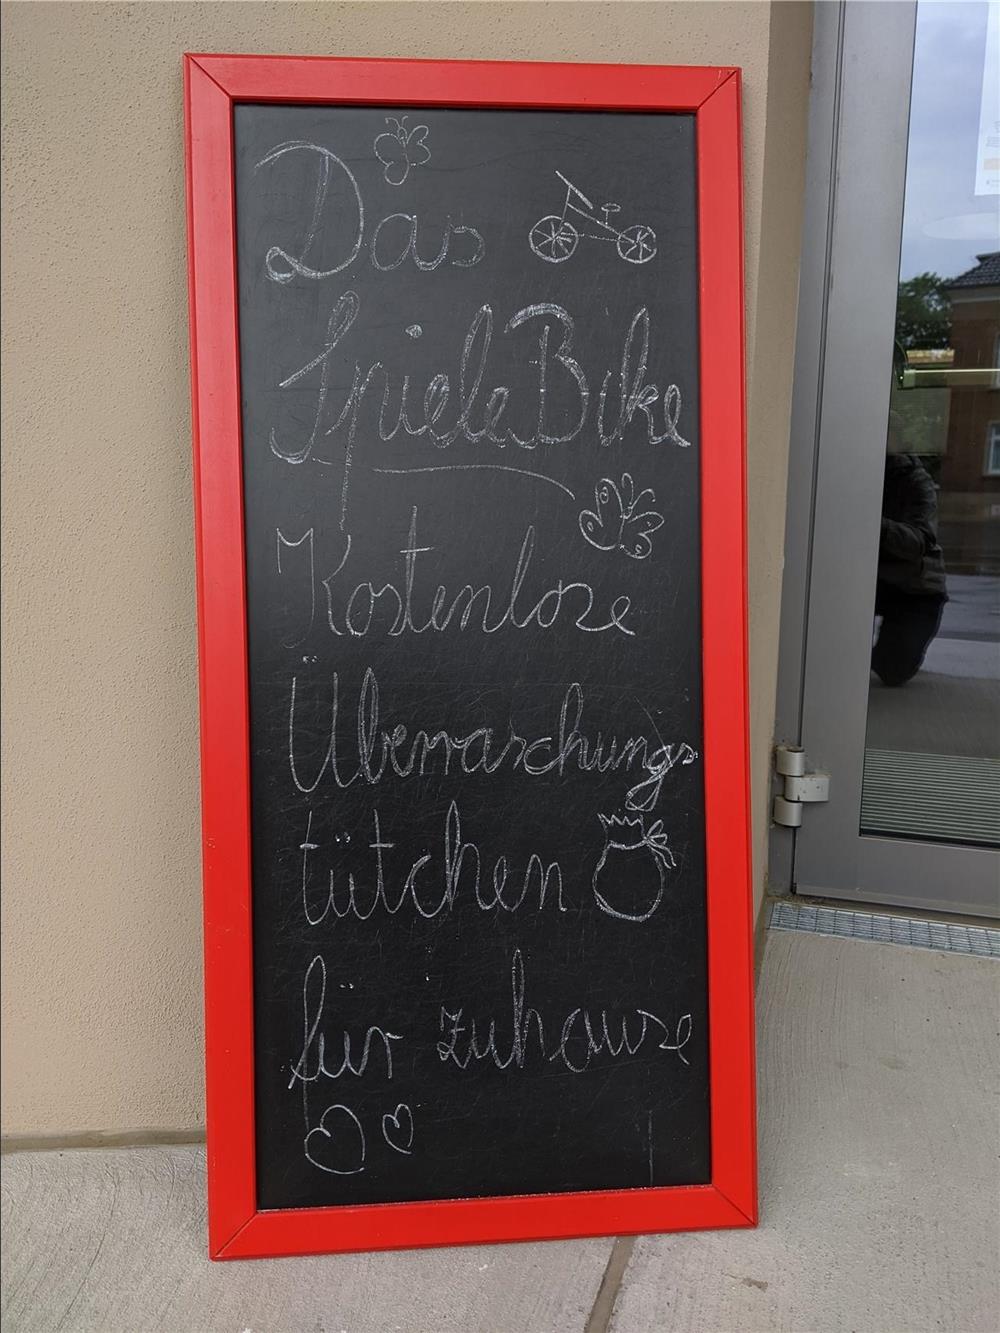 Das
SpieleBike
Kostenlose
Überraschungs
tütchen
für zuhause